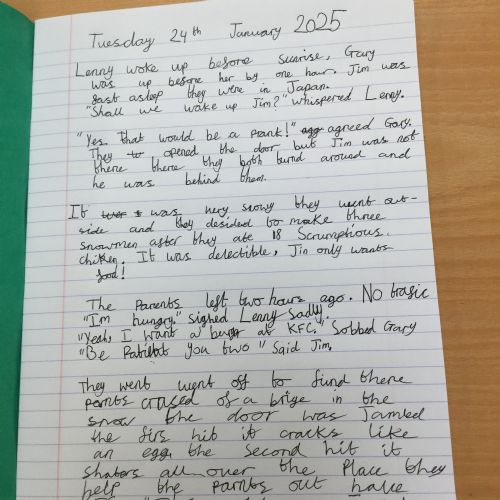 Tuesday 24th January 2025
Lenny woke up before sunrise, Gary
was up before her by one hour. Jim was
fast asleep they were in Japan.
"Shall we wake up Jim?" whisperred Lenny.
"Yes. That would be a prank!" agreed Gary.
They opened the door but Jim was not
there there they both turnd around and
he was behind them.
It was very snowy they went out-
side and they desided to make three
snowmen after they ate 18 Scrumptious
chiken. It was delectible, Jim only wants
food!
The Parents left two hours ago. No trafic
"I'm hungry." sighed Lenny Sadly.
"Yeah, I want a at KFC." Sobbed Gary
"Be you two" Said Jim.
They went went off to find there
of a brige in the
snow the door was Jamed
the firs hit it cracks like
an egg the second hit it
shaters all over the Place they
help the out have